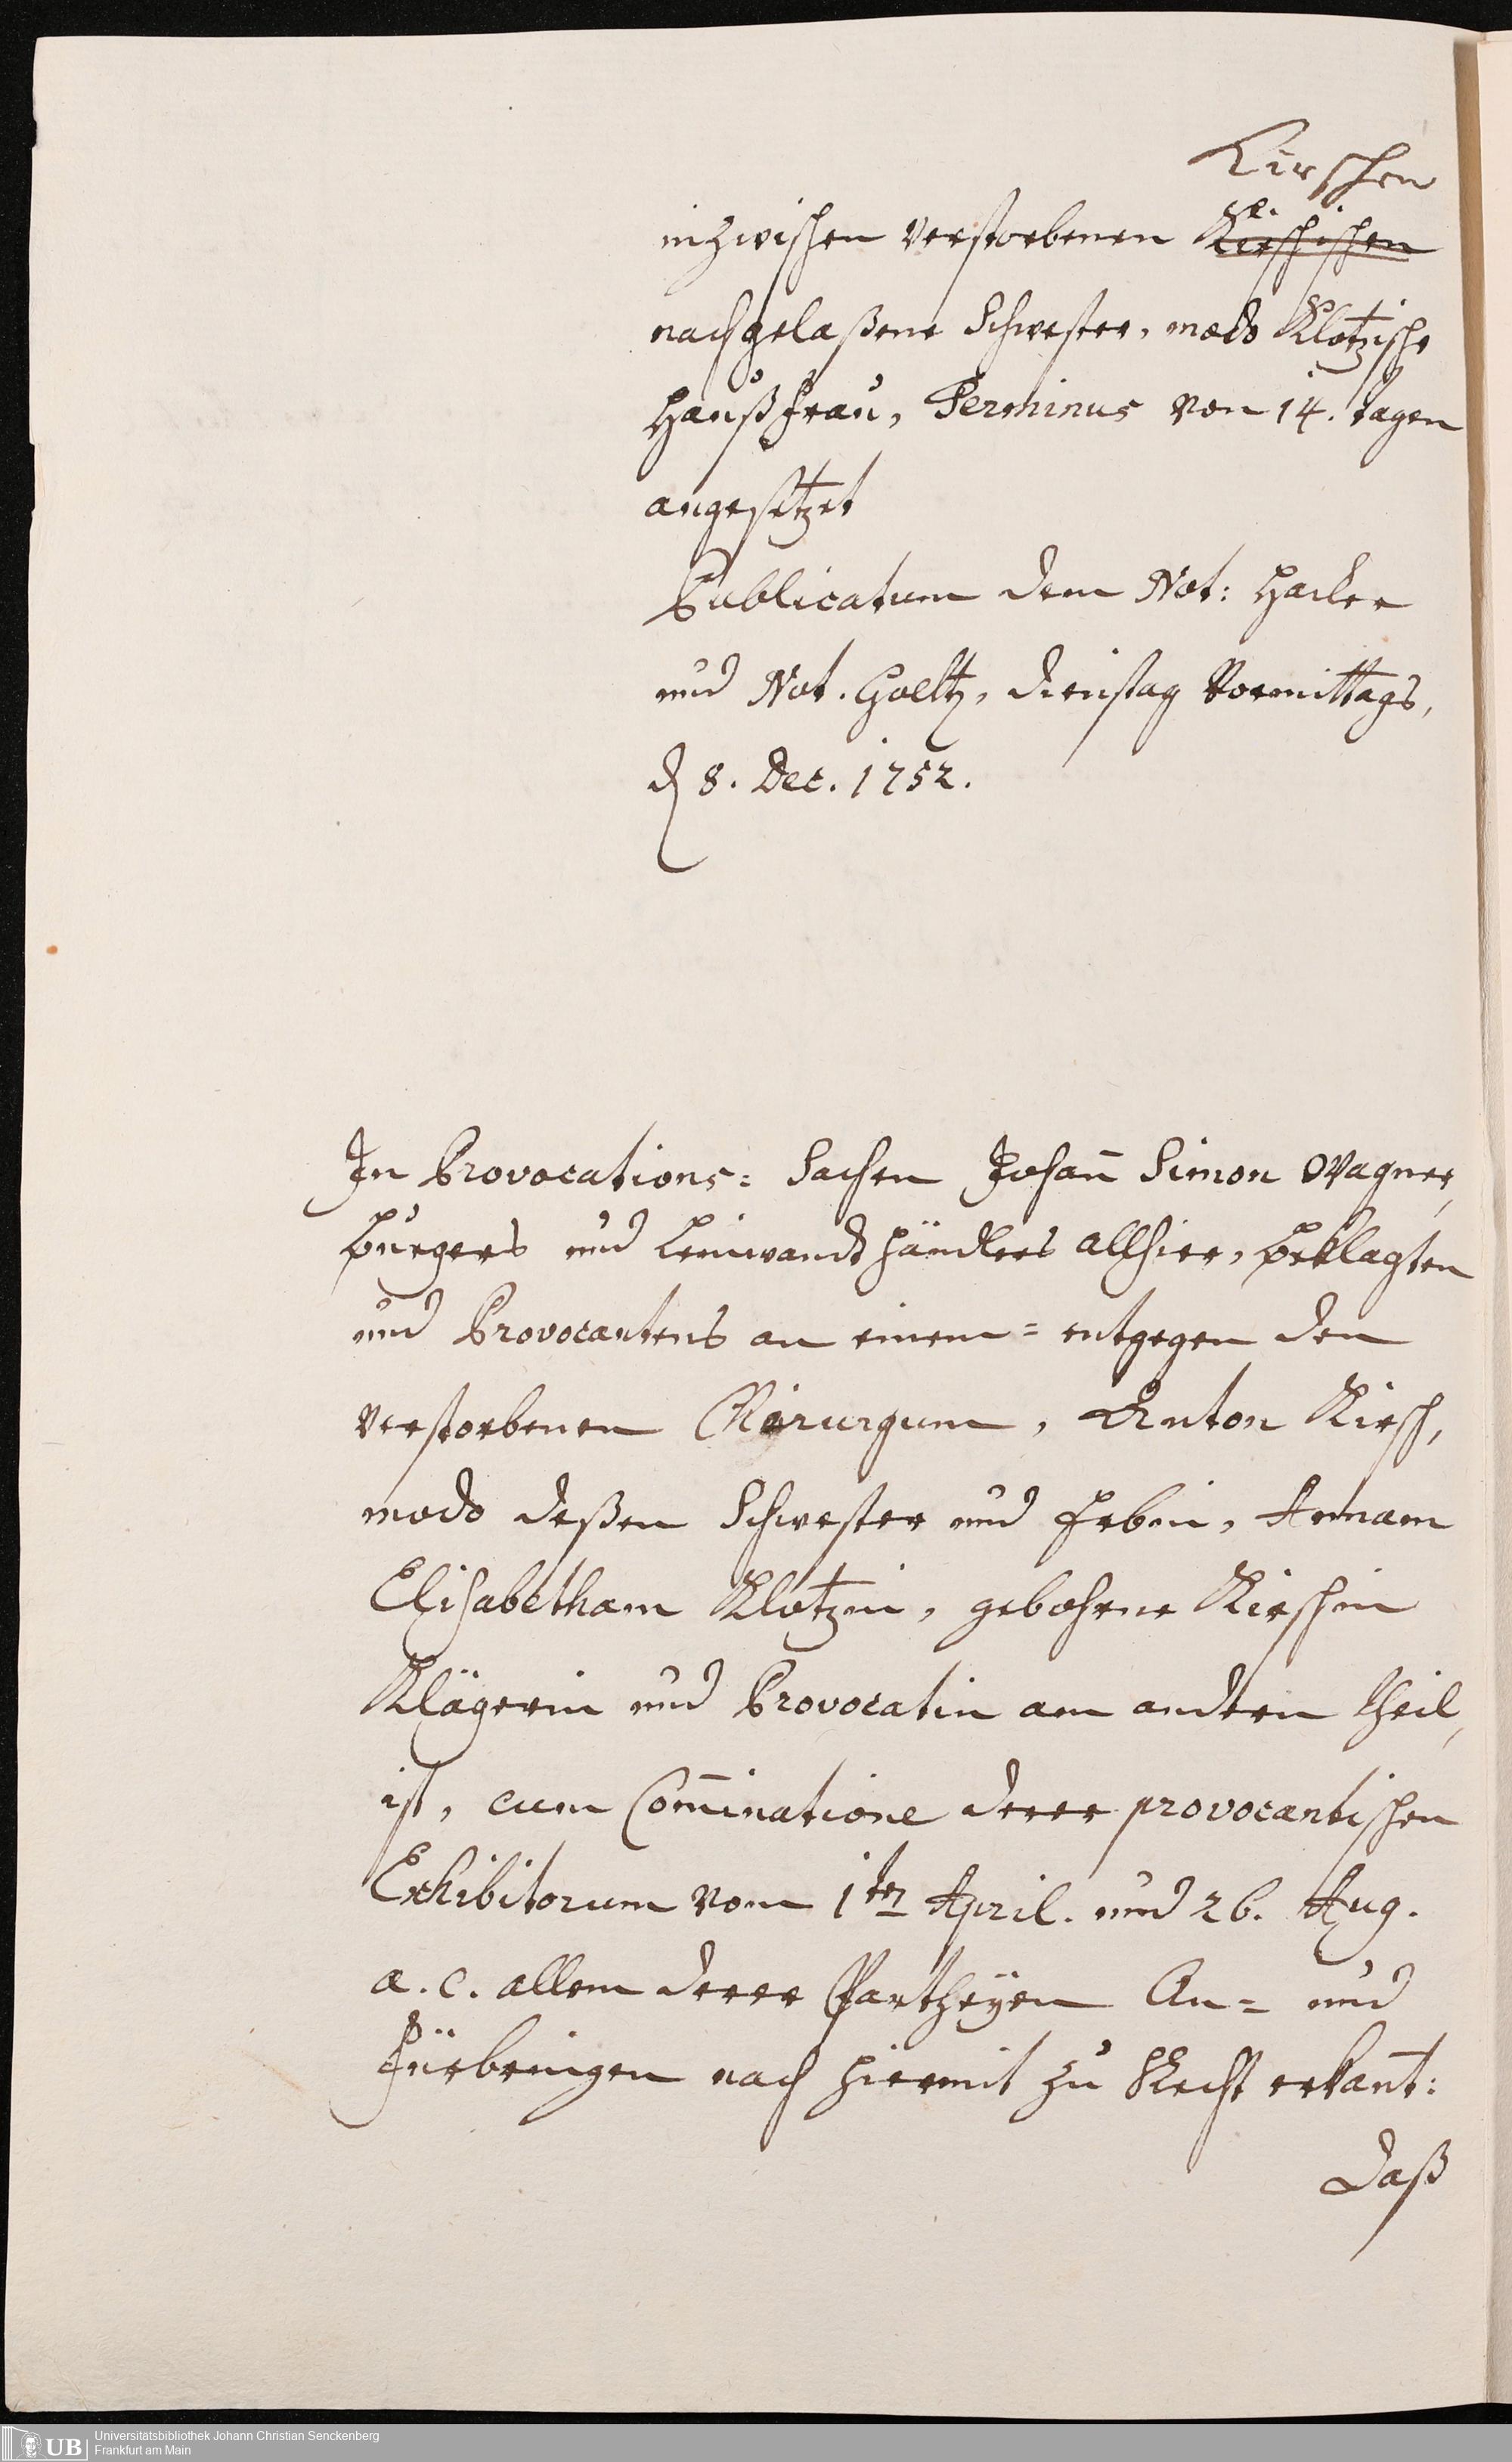 Kirschen
inzwischen verstorbenen Kirschischen
nachgelaßene Schwester, modo Klotzische
Haußfrau, Terminus von 14. tagen
angesetzet
Publicatum dem Not: Hacker
und Not. Goeltz, Dienstag Vormittags,
d 8. Dec. 1752.
In Provocations= Sachen Johan̄ Simon Wagner,
burgers und Leinwandt händlers allhier, beklagten
und Provocantens an einem= entgegen den
verstorbenen Chirurgum, Anton Kirsch,
modo deßen Schwester und Erbin, Annam
Elisabetham Klotzin, gebohrne Kirschin
Klägerin und Provocatin am andern theil,
ist, cum Com̄inatione derer provocantischen
Exhibitorum vom 1ten April. und 26. Aug.
a. c. allem derer Partheyen An= und
Fürbringen nach hiermit zu Recht erkan̄t:
Daß
UB Universitätsbibliothek Johann Christian Senckenberg
Frankfurt am Main